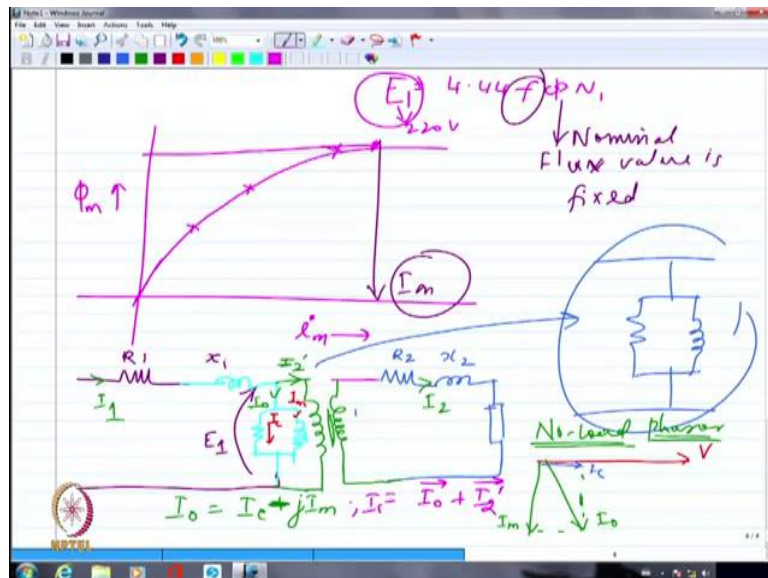 Note1 - Windows Journal
File Edit View Insert Actions Tools Help
E1 = 4.44 f φ N1
220 V
Nominal
Flux value is
fixed
φm ↑
Im
im →
R1 x1 I2' R2 x2
I1 I0 Ic Im I2
E1
No-load phasor
V
Ic
Im I0
I0 = Ic - jIm ; I1 = I0 + I2'
NPTEL
4/4